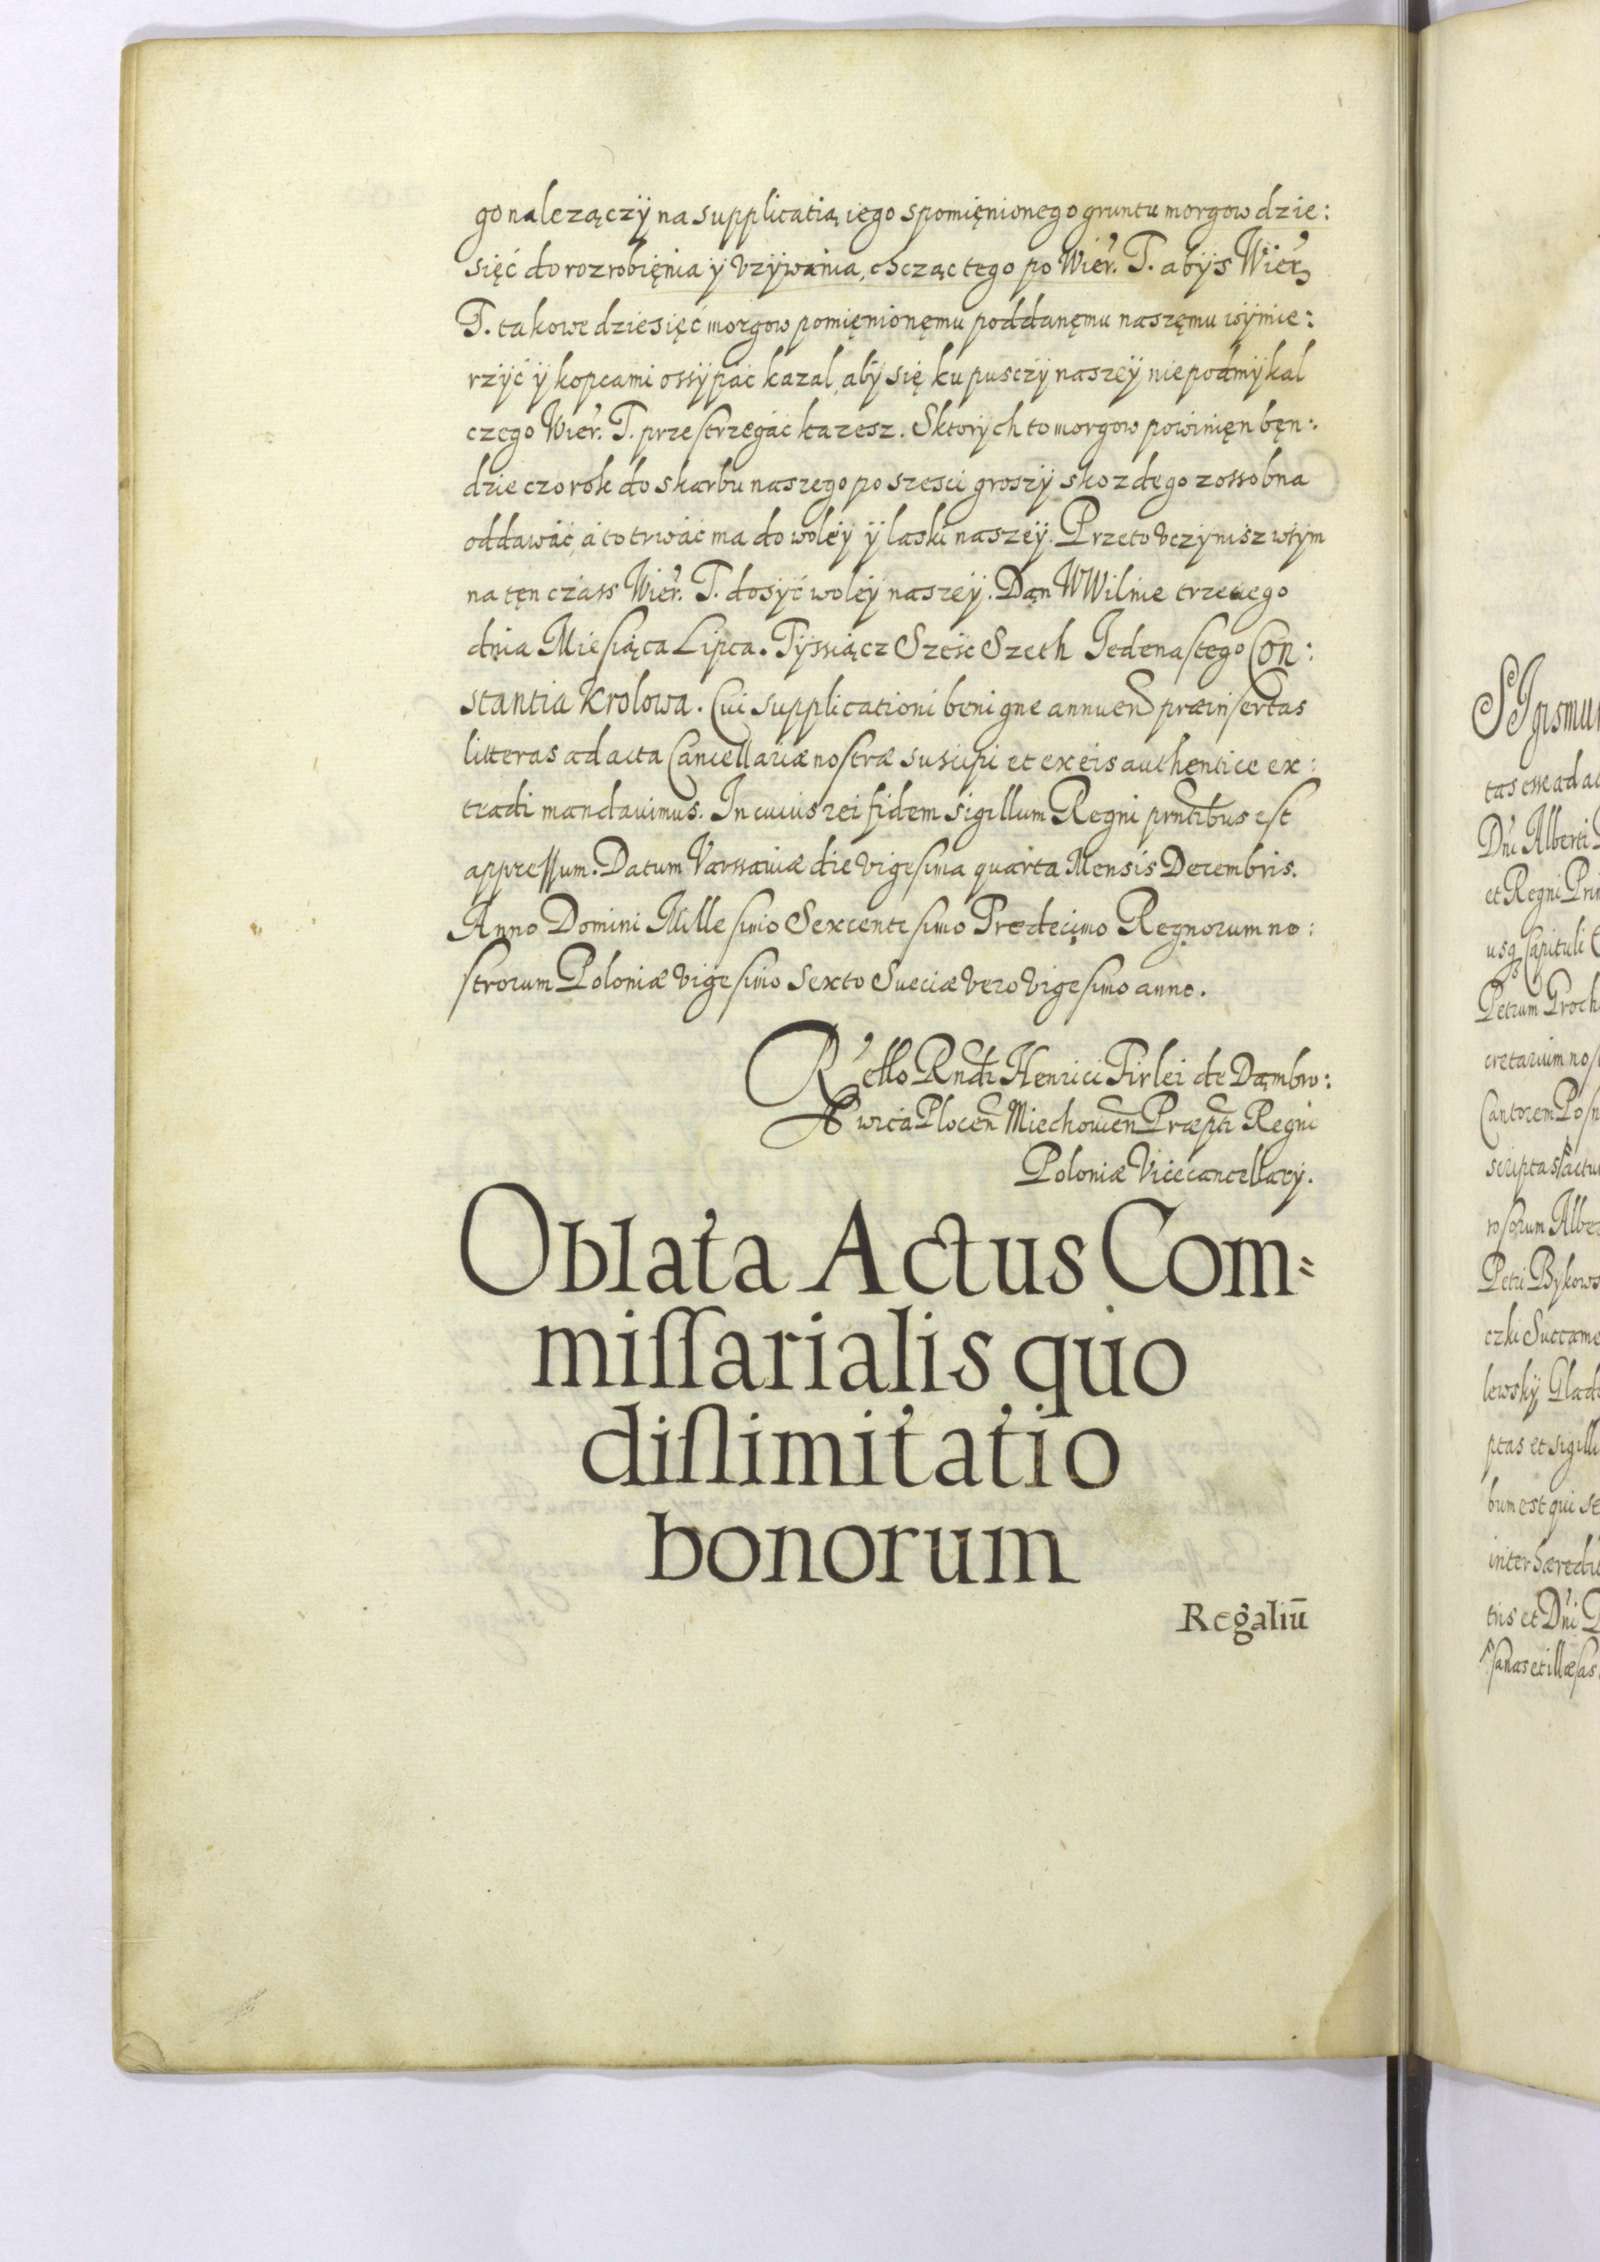 go należączÿ na supplicatią iego spomięnionego gruntu morgow dzie:
sięć do rozrobięnia ÿ vzÿwania, chcząc tego po Wier. T. abÿs Wier.
T. takowe dziesięć morgow pomięnionęmu poddanęmu naszęmu wÿmie:
rzÿć ÿ kopcami ossÿpać kazal, abÿ się ku pusczÿ naszeÿ nie podmÿkal
czego Wier. T. przestrzegać kazesz. Sktorÿch to morgow powinięn bęn:
dzie czo rok do skarbu naszego po szesci groszÿ skozdego zossobna
oddawać, á to trwać ma do woleÿ ÿ laski naszeÿ. Przeto vczÿnisz wtÿm
na tęn czass Wier. T. dosÿć woleÿ naszeÿ. Dan W Wilnie trzeciego
dnia Miesiąca Lipca. Tÿssiącz Szesc Szeth Jedenastego Con:
stantia Krolowa. Cui supplicationi benigne annuen præinsertas
litteras ad acta Cancellariæ nostræ suscipi et ex eis authentice ex:
tradi mandavimus. In cuius rei fidem sigillum Regni prntibus est
appressum. Datum Varssaviæ die vigesima quarta Mensis Decembris.
Anno Domini Millesimo Sexcentesimo Tredecimo Regnorum no:
strorum Poloniæ vigesimo Sexto Sueciæ vero vigesimo anno.
R'ello Rndi Henrici Firlei de Dąmbro:
wica Plocen Miechovien Præpti Regni
Poloniæ Vicecancellarÿ.
Oblata Actus Com=
missarialis quo
dislimitatio
bonorum
Regaliū
SIgismu
tas esse ad ac
Dni Alberti
et Regni Prim
usq Capituli
Petrum Groch
cretarium nos
Cantorem Posn
scriptas, actu
rosorum Alber
Petri Bykows
czki Succame
lewskÿ Glad
ptas et sigilli
bum est qui se
inter hæredit
tris et Dni
sanas et illæsas